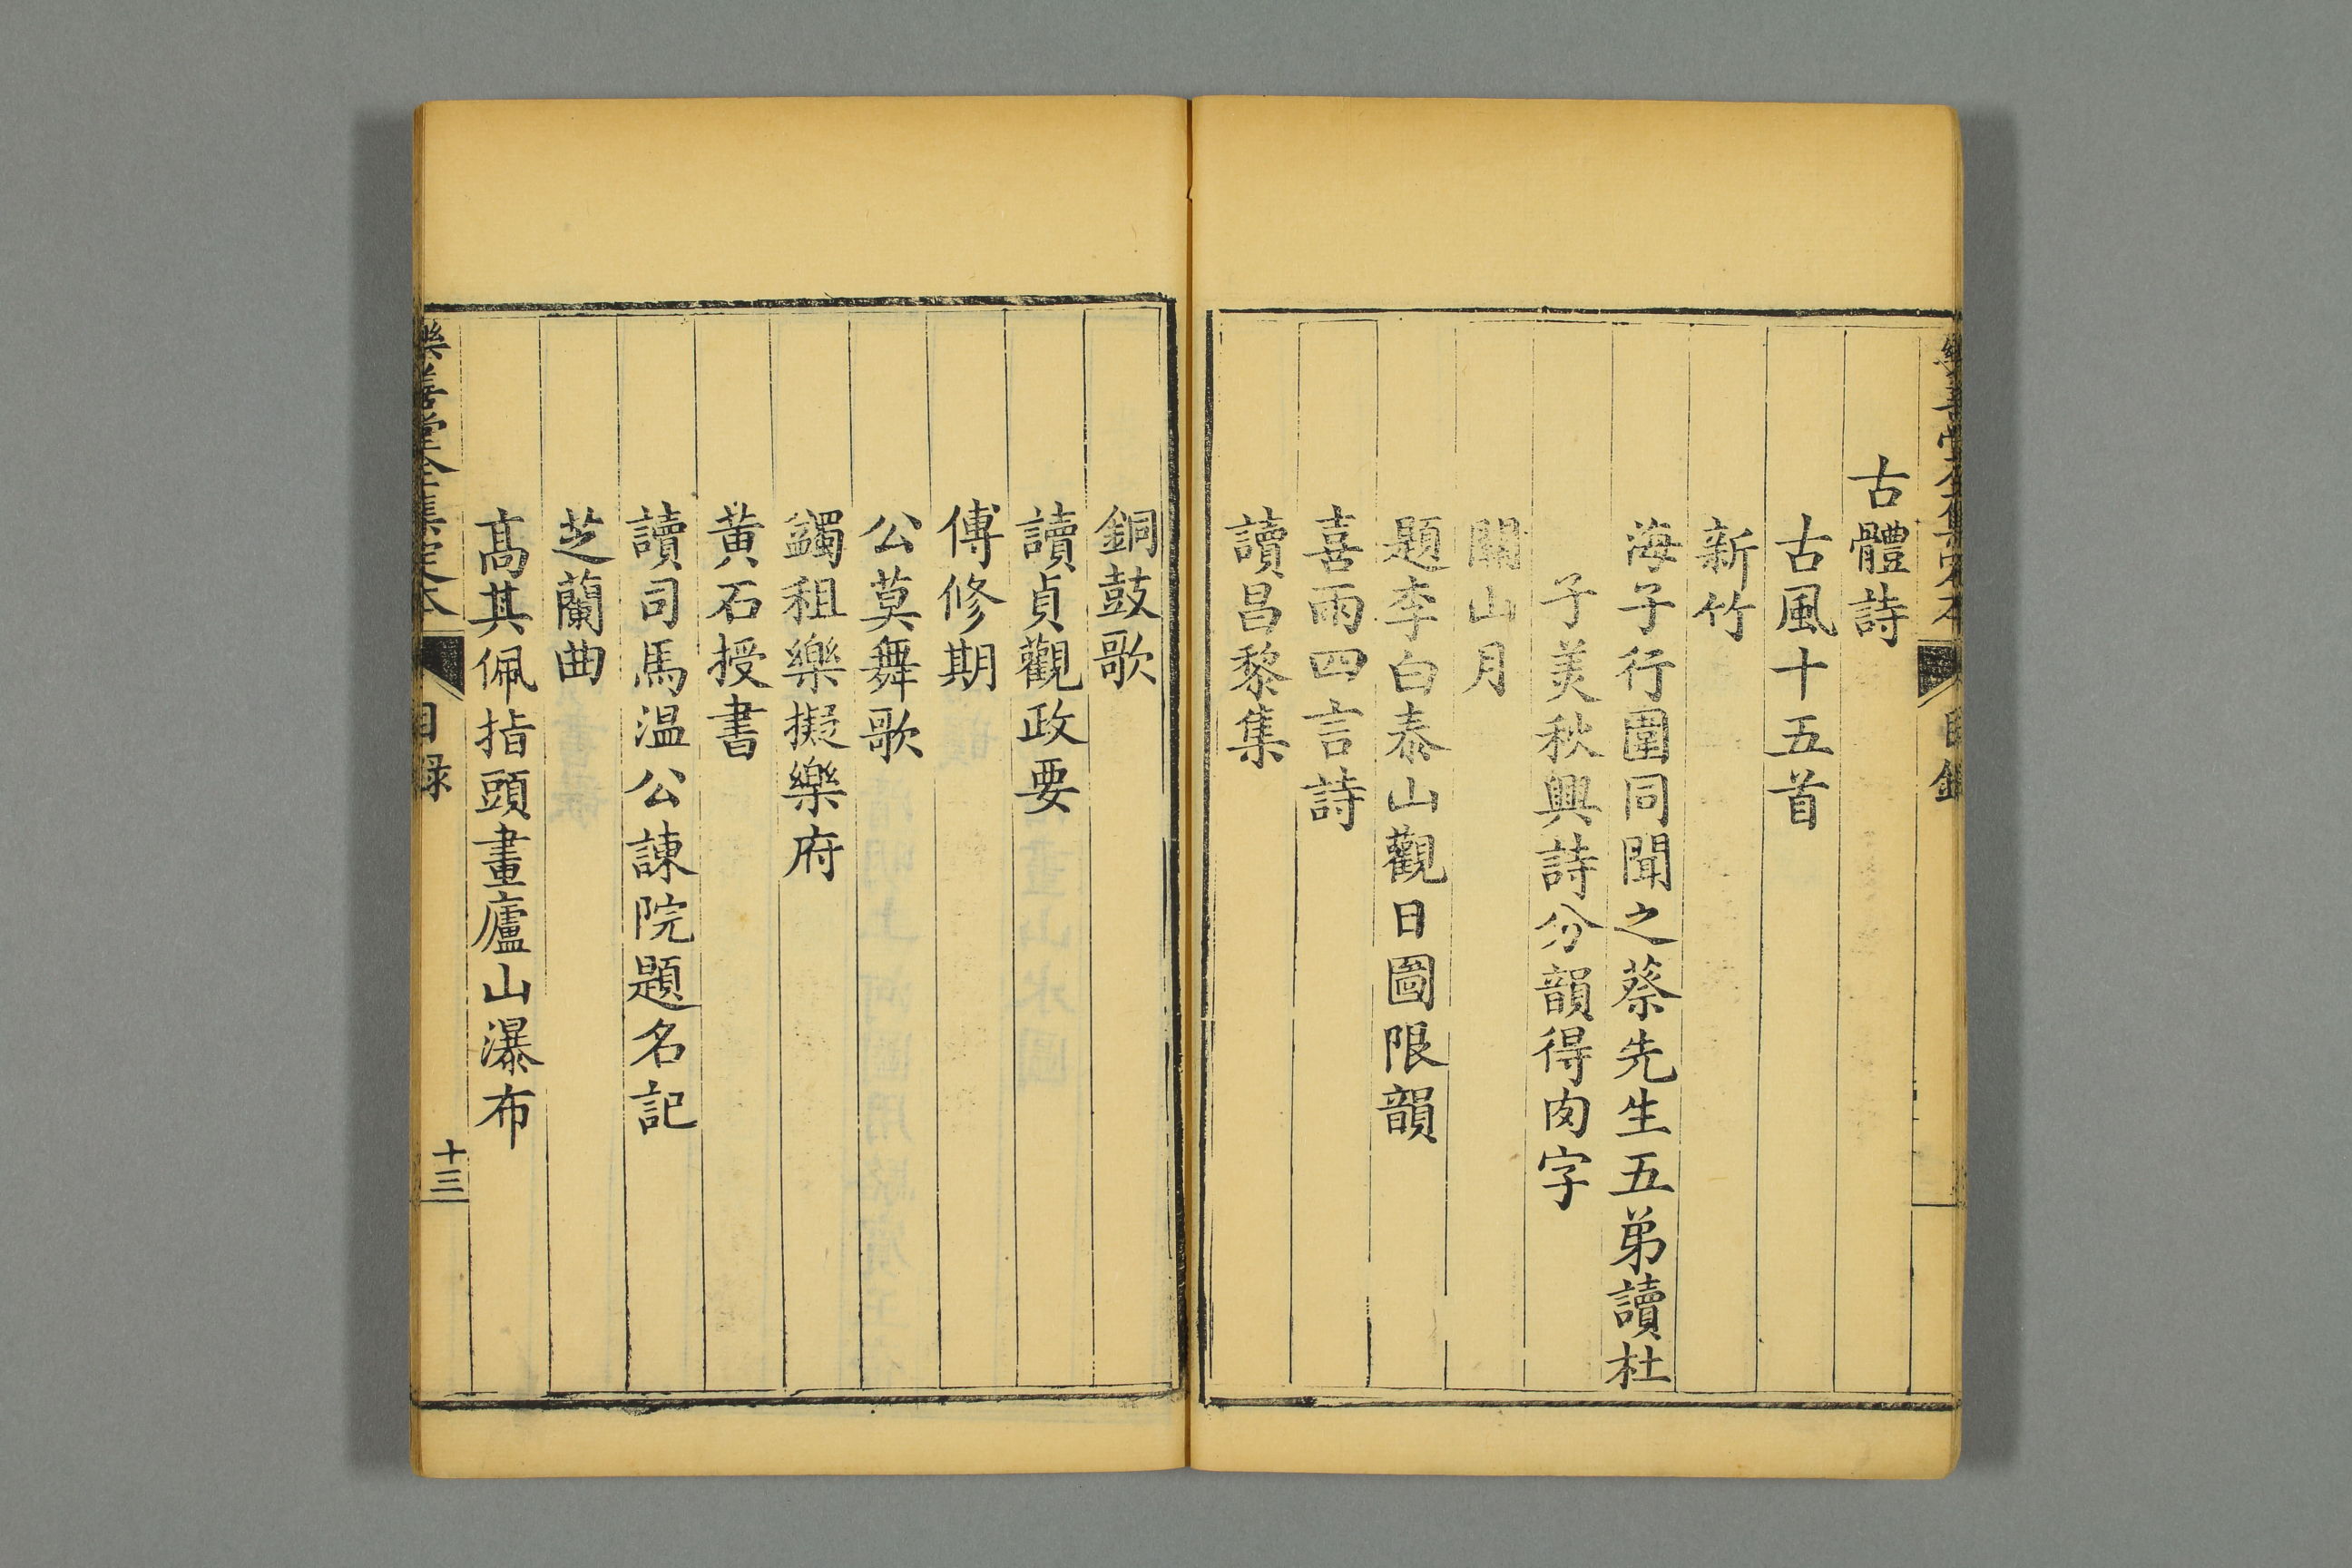 樂善堂全集定本 目錄
古體詩
古風十五首
新竹
海子行圍同聞之蔡先生五弟讀杜
子美秋興詩分韻得肉字
關山月
題李白泰山觀日圖限韻
喜雨四言詩
讀昌黎集
銅鼓歌
讀貞觀政要
傅修期
公莫舞歌
蠲租樂擬樂府
黃石授書
讀司馬温公諫院題名記
芝蘭曲
高其佩指頭畫廬山瀑布
樂善堂全集定本 目録 十三